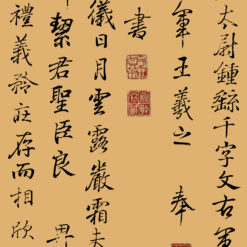 太尉鍾繇千字文右軍
軍王羲之 奉
書
儀日月雲露嚴霜夫
絜君聖臣良
禮義矜莊存而相欣